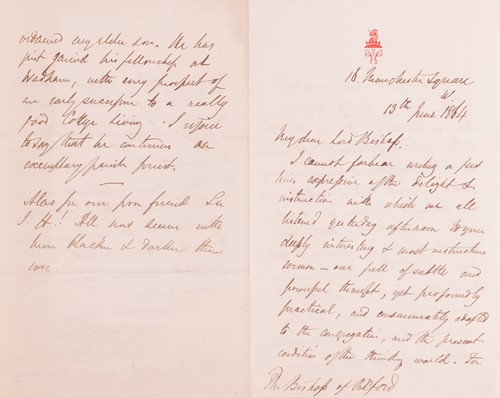 16. Manchester Square
W
13th June 1864
My dear Lord Bishop.
I cannot forbear writing a few
lines expressive of the delight &
instruction with which we all
listened yesterday afternoon to your
deeply interesting & most instructive
sermon – one full of subtle and
powerful thought, yet profoundly
practical, and consummately adapted
to the congregation, and the present
condition of the thinking world. For
The Bishop of Oxford
ordained my elder son. He has
just gained his fellowship at
Wadham, with every prospect of
an early succession to a really
good College Living. I rejoice
to say that he continues an
exemplary parish priest.
Alas for our poor friend
All now seems with
him blacker & darker than
ever.